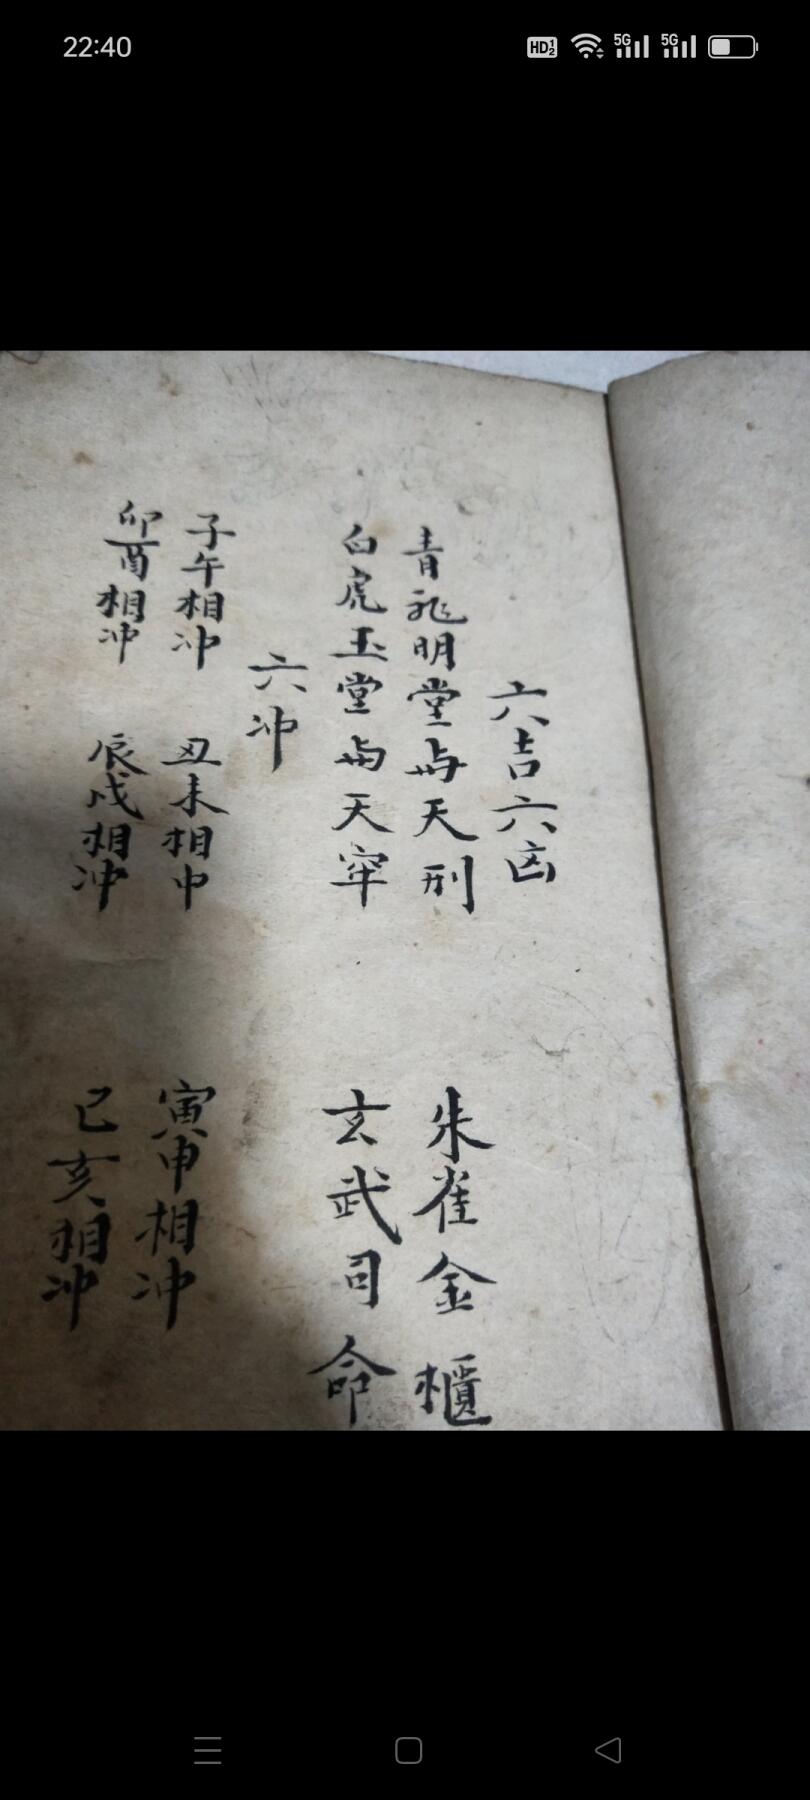 22:40
HD 1 2 5G 5G
六吉六凶
青龙明堂與天刑 朱雀金櫃
白虎玉堂與天牢 玄武司命
六冲
子午相冲 丑未相中 寅申相冲
卯酉相冲 辰戌相冲 巳亥相冲